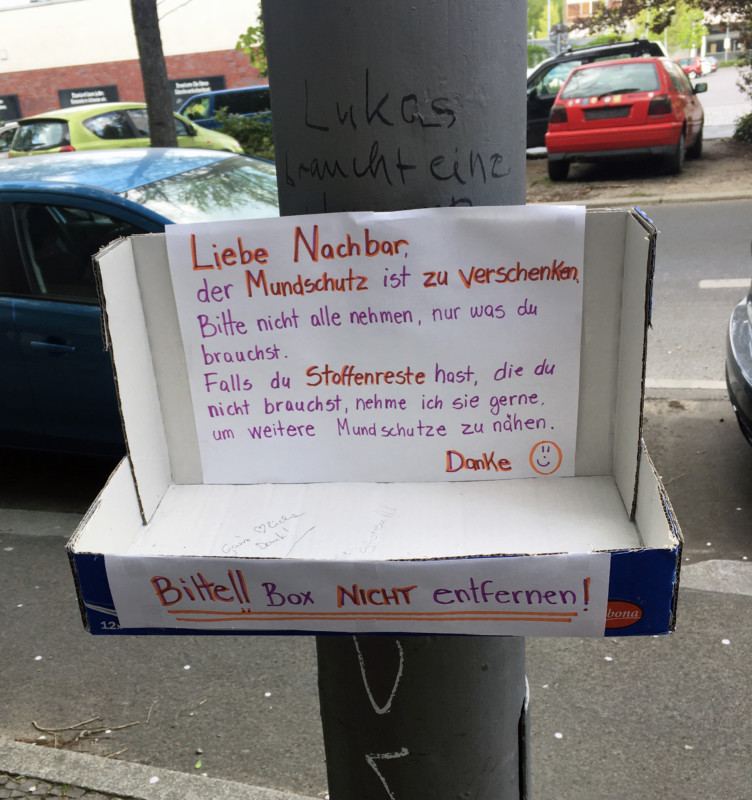 Lukas
braucht eine
Liebe Nachbar,
der Mundschutz ist zu verschenken.
Bitte nicht alle nehmen, nur was du
brauchst.
Falls du Stoffenreste hast, die du
nicht brauchst, nehme ich sie gerne,
um weitere Mundschutze zu nähen.
Danke
Bitte!! Box NICHT entfernen!
12
bona